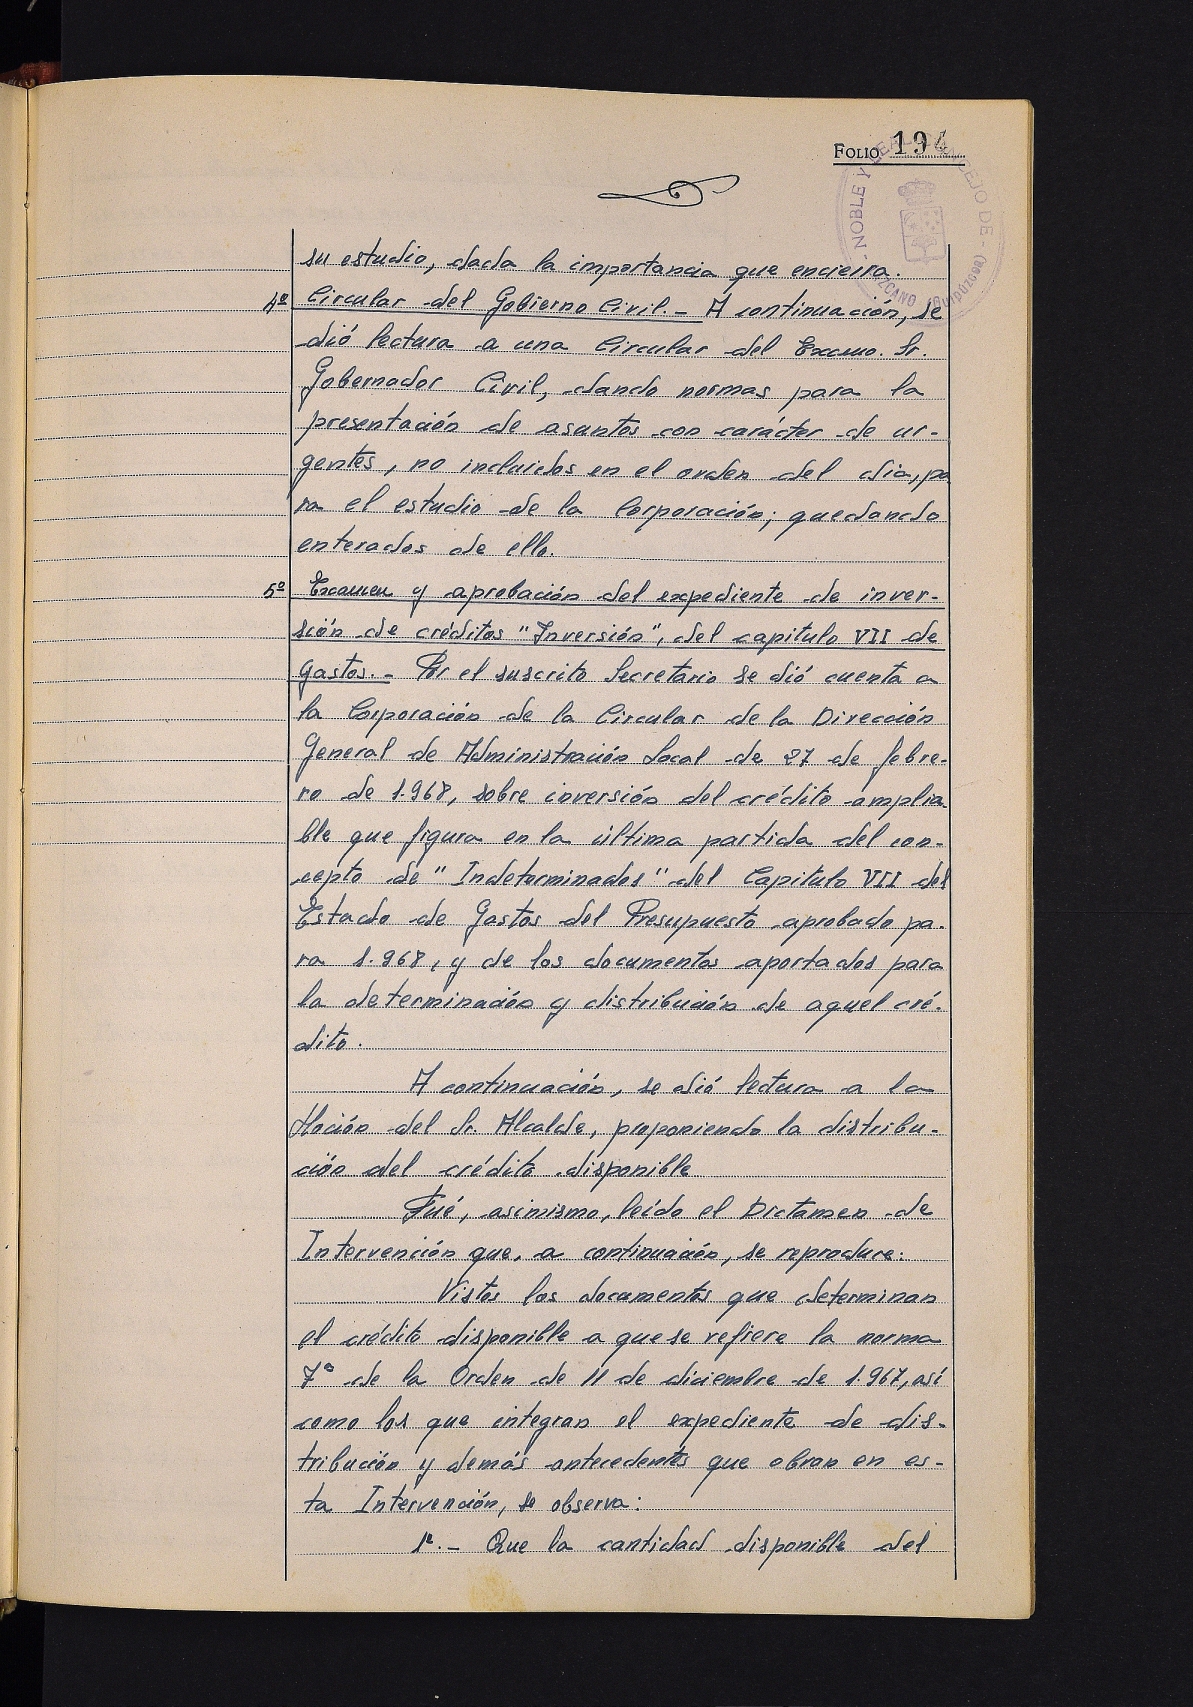 FOLIO 194
su estudio, dada la importancia que encierra.
4º Circular del Gobierno Civil.- A continuación, se
dió lectura a una Circular del Excmo. Sr.
Gobernador Civil, dando normas para la
presentación de asuntos con carácter de ur-
gentes, no incluidos en el orden del dia, pa
ra el estudio de la Corporación; quedando
enterados de ello.
5º Examen y aprobación del expediente de inver-
sión de créditos "Inversión", del capitulo VII de
Gastos.- Por el suscrito Secretario se dió cuenta a
la Corporación de la Circular de la Dirección
General de Administración Local de 27 de febre-
ro de 1.968, sobre inversión del crédito amplia-
ble que figura en la última partida del con-
cepto de "Indeterminados" del Capitulo VII del
Estado de Gastos del Presupuesto aprobado pa-
ra 1.968, y de los documentos aportados para
la determinación y distribución de aquel cré-
dito.
A continuación, se dió lectura a la
Moción del Sr. Alcalde, proponiendo la distribu-
ción del crédito disponible
Fué, asimismo, leído el Dictamen de
Intervención que, a continuación, se reproduce:
Vistos los documentos que determinan
el crédito disponible a que se refiere la norma
7ª de la Orden de 11 de diciembre de 1.967, así
como los que integran el expediente de dis-
tribución y demás antecedentes que obran en es-
ta Intervención, se observa:
1º.- Que la cantidad disponible del
NOBLE Y LEAL CONCEJO DE
(Guipúzcoa)